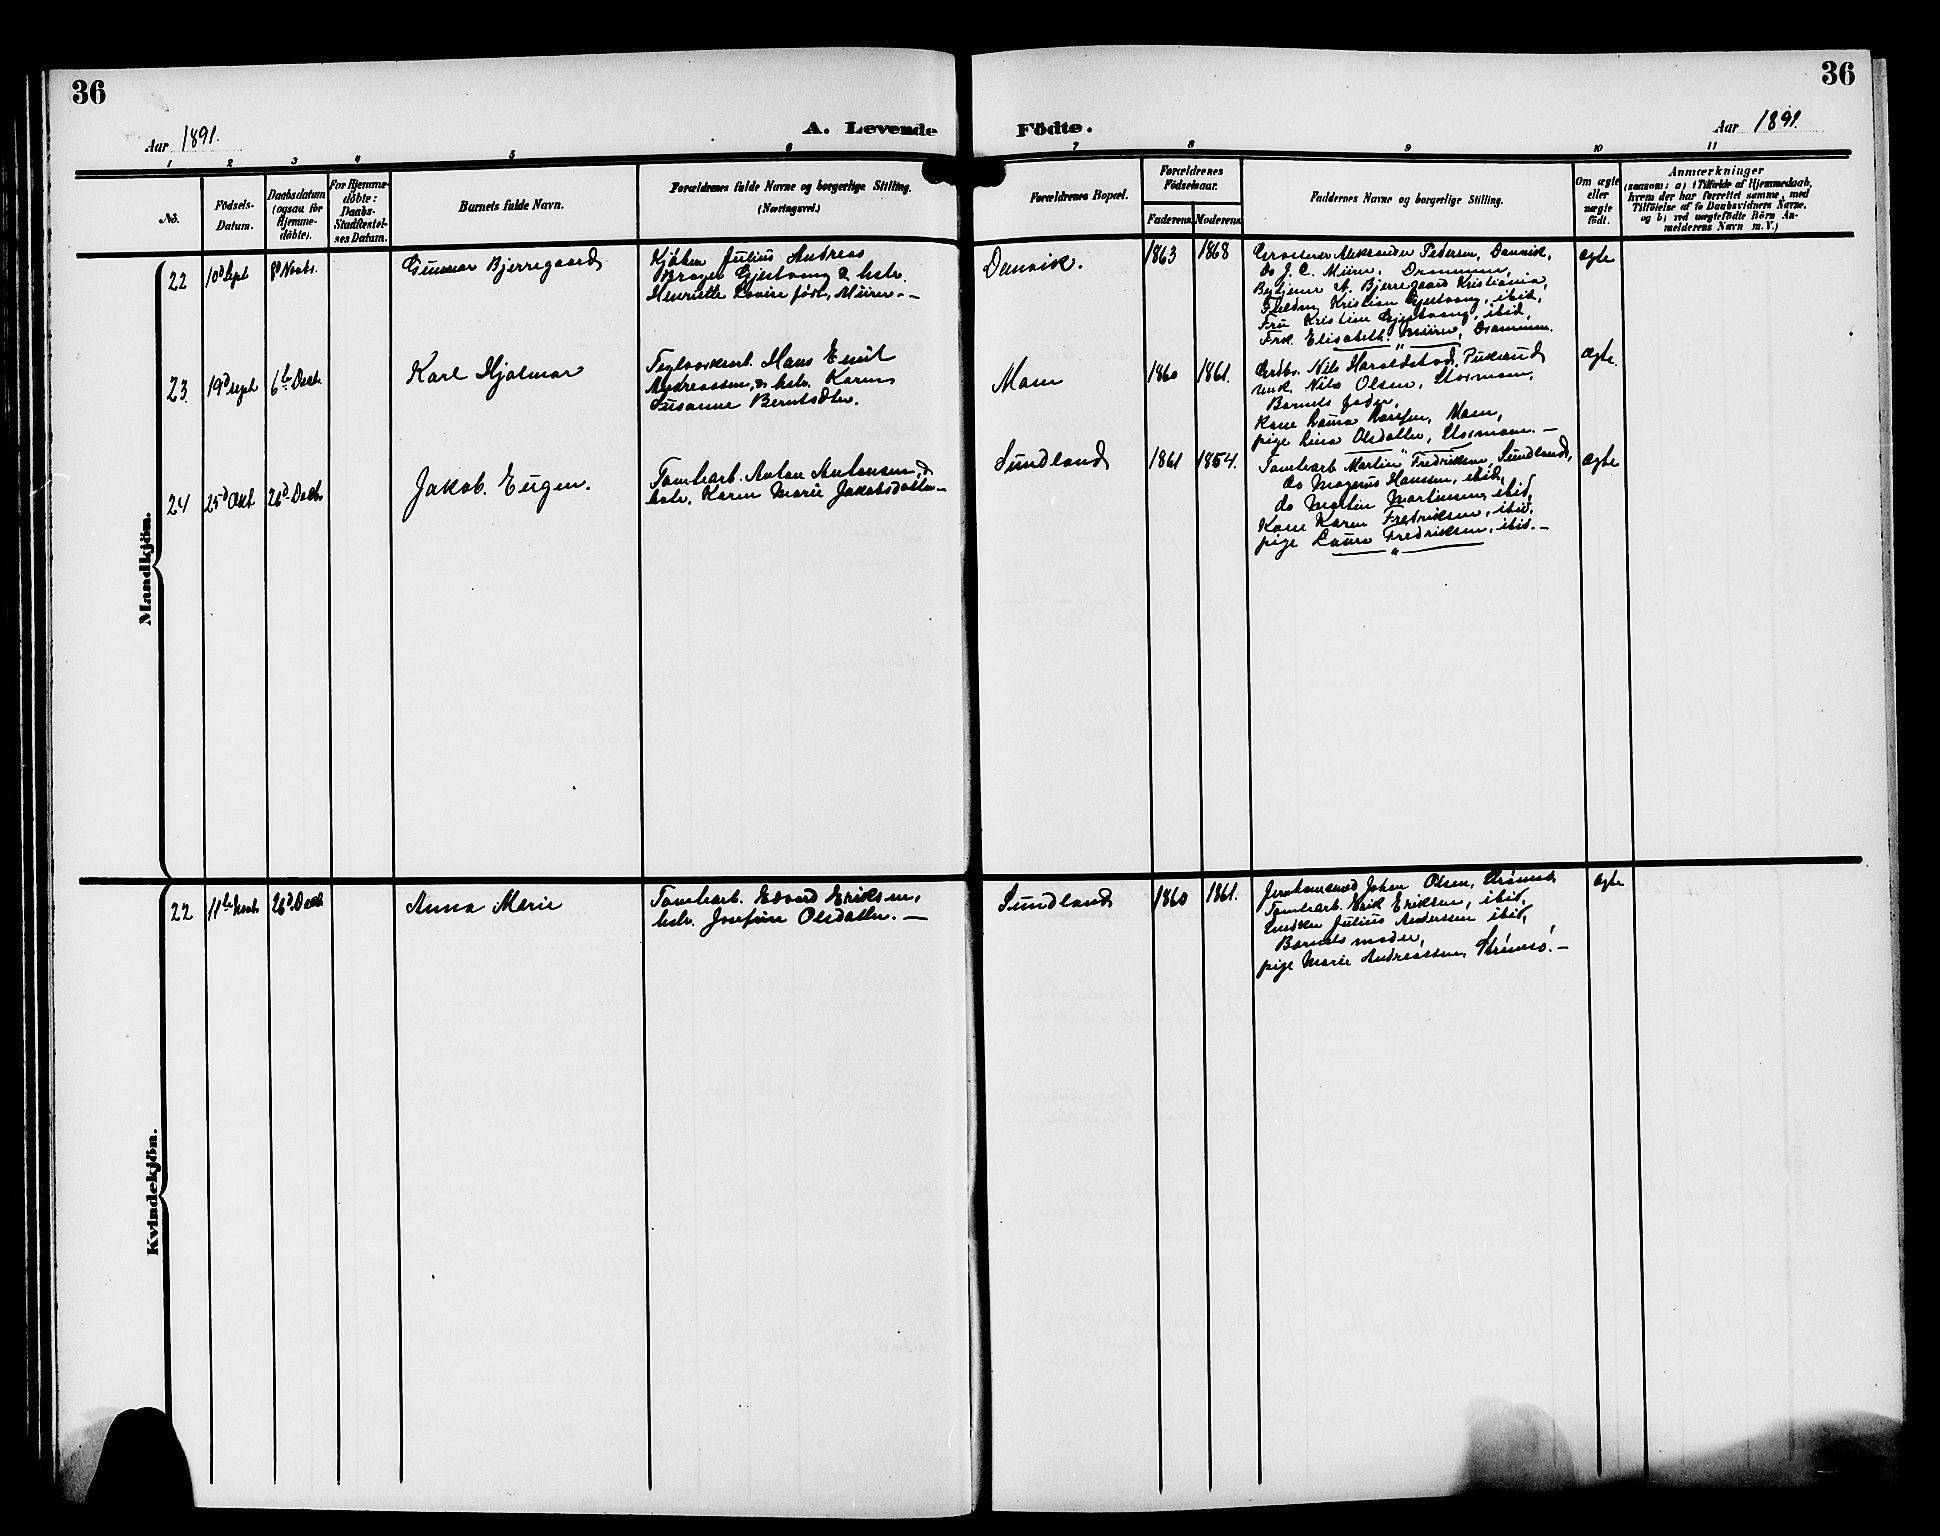 36
36
Aar 1891.
A. Levende
Födte.
Aar 1891.
1
2
3
4
5
6
7
8
9
10
11
No.
Födsels-
Datum.
Daabsdatum
(ogsaa for
Hjemme-
döbte).
For Hjemme-
döbte:
Daabs-
Stadfæstel-
ses Datum.
Barnets fulde Navn.
Forældrenes fulde Navne og borgerlige Stilling.
(Næringsvei.)
Forældrenes Bopæl.
Forældrenes
Födselsaar.
Faderens.
Moderens.
Faddernes Navne og borgerlige Stilling.
Om ægte
eller
uægte
födt.
Anmærkninger
(saasom: a) i Tilfælde af Hjemmedaab,
hvem der har forrettet samme, med
Tilföielse af to Daabsvidners Navne.
og b) ved uægtefödte Börn An-
melderens Navn m. V.)
Mandkjön.
22
10d Sept
8d Novbr.
Gunnar Bjerregaard
Julius Andreas
Gjestvang & hstr.
Henriette Lovise født Miirer. —
Danvik.
1863
1868
Aleksander Pedersen, Danvik,
do J. C. Miirer, Drammen,
A. Bjerregaard Kristiania,
Kristian Gjestvang, ibid,
Fru Kristine Gjestvang, ibid,
Frk. Elisabeth Miirer, Drammen.
ægte
23
19d Sept
6te Decbr
Karl Hjalmar
Teglværksarb. Hans Emil
Andreassen, & hstr. Karen
Susanne Berntsdtr.
Mæen
1860
1861.
Grdbr. Nils Haraldstad, Pukerud
unk. Nils Olsen, Stormoen,
Barnets fader,
Kone Laura Larsen, Mæen,
pige Lina Olsdatter, Stormoen. —
ægte.
24
25d Okt
26d Decbr
Jakob Eugen.
Tomtearb. Anton Antonsen, &
hstr. Karen Marie Jakobsdatter —
Sundland
1861
1854.
Tomtearb Martin Fredriksen, Sundland,
do Magnus Hansen, ibid,
do Martin Martinsen, ibid,
Kone Karen Fredriksen, ibid,
pige Laura Fredriksen, ibid. —
ægte
Kvindekjön.
22
11te Novbr.
26d Decbr
Anna Marie
Tomtearb. Edvard Eriksen,
hstr. Josefine Olsdatter. —
Sundland
1860
1861.
Johan Olsen, Strømsø
Tomtearb. Erik Eriksen, ibid,
Snedker Julius Anderssen ibid,
Barnets moder,
pige Marie Andreassen, Strømsø. —
ægte